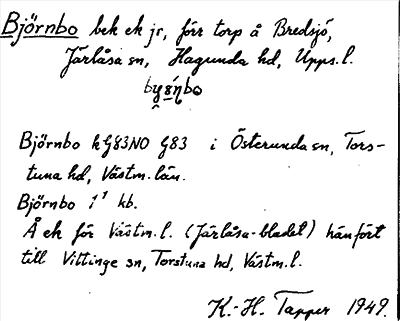 Björnbo bek ek jr, förr torp å Bredsjö,
Järlåsa sn, Hagunda hd, Upps. l.
Björnbo kG83NO G83 i Österunda sn, Tors-
tuna hd, Västm. län.
Björnbo 1¹ kb.
Å ek för Västm. l. (Järlåsa-bladet) hänfört
till Vittinge sn, Torstuna hd, Västm. l.
K.-H. Tapper 1949.